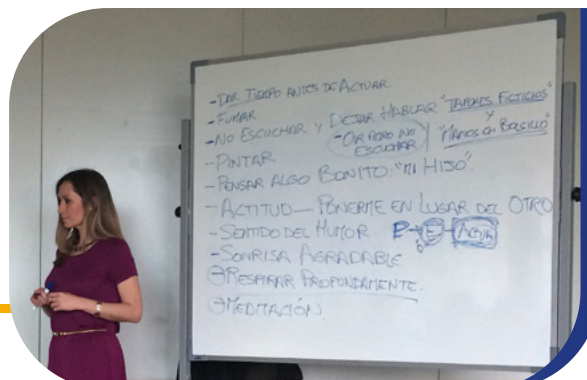 - DAR TIEMPO ANTES DE ACTUAR.
- FUMAR
- NO ESCUCHAR Y DEJAR HABLAR "TAPONES FICTICIOS"
- OIR PERO NO ESCUCHAR
Y "MANOS EN BOLSILLO"
- PINTAR
- PENSAR ALGO BONITO: "MI HIJO".
- ACTITUD — PONERME EN LUGAR DEL OTRO
- SENTIDO DEL HUMOR P → E → ACTUA
- SONRISA AGRADABLE
- RESPIRAR PROFUNDAMENTE.
- MEDITACIÓN.